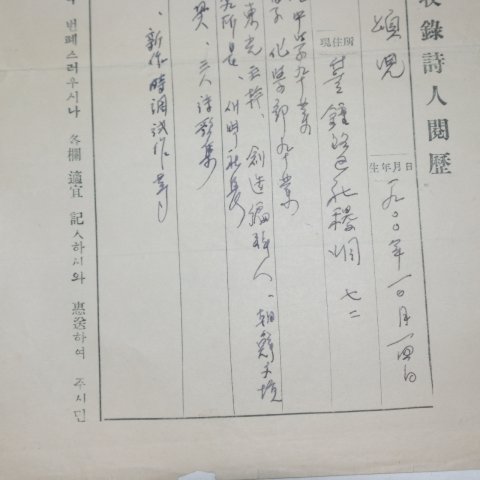 錄詩人閱歷
頌兒
生年月日
一九〇〇年一〇月一四日
現住所
鍾路區社稷洞 七二
中学卒業
化學部卒業
東光主幹、創造編輯人、朝鮮文壇
새벽社長
三人詩歌集
新作時調試作
번폐스러우시나 各欄 適宜 記入하시와 惠送하여 주시면